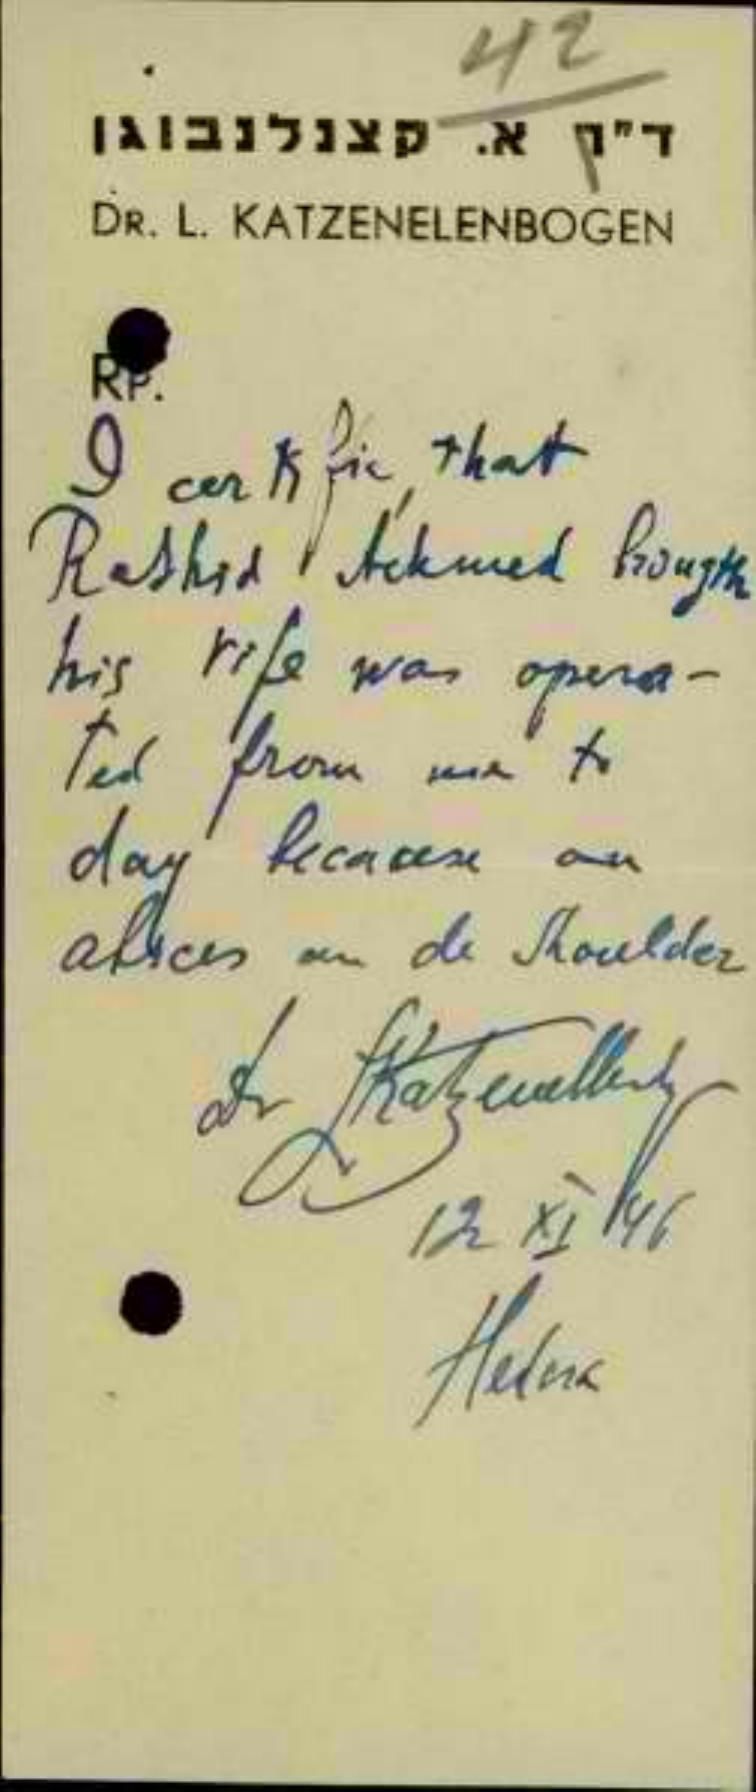 42
ד"ר א. קצנלנבוגן
DR. L. KATZENELENBOGEN
RP.
I certific, that
Rashid Achmed brougth
his vife was opera-
ted from me to
day because an
absces an de Shoulder
Dr LKatzenellenb
12 XI 46
Hedera